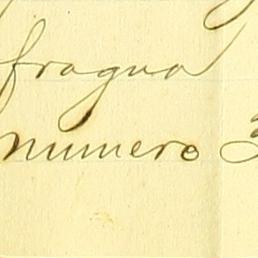 fragua
numero